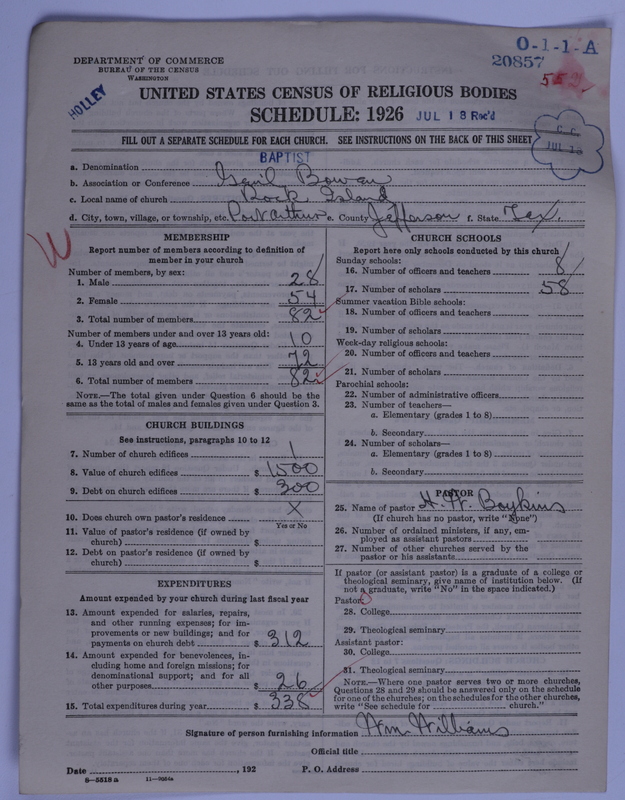 O-1-1-A
20857
DEPARTMENT OF COMMERCE
BUREAU OF THE CENSUS
WASHINGTON
HOLLEY
UNITED STATES CENSUS OF RELIGIOUS BODIES
SCHEDULE: 1926 JUL 13 Rec'd
FILL OUT A SEPARATE SCHEDULE FOR EACH CHURCH. SEE INSTRUCTIONS ON THE BACK OF THIS SHEET
C. C.
JUL 13
BAPTIST
a. Denomination
b. Association or Conference Bowen
c. Local name of church Rock Island
d. City, town, village, or township, etc. Port Arthur e. County Jefferson f. State Tex
MEMBERSHIP
Report number of members according to definition of
member in your church
Number of members, by sex:
1. Male 28
2. Female 54
3. Total number of members 82
Number of members under and over 13 years old:
4. Under 13 years of age 10
5. 13 years old and over 72
6. Total number of members 82
NOTE.—The total given under Question 6 should be the
same as the total of males and females given under Question 3.
CHURCH BUILDINGS
See instructions, paragraphs 10 to 12
7. Number of church edifices 1
8. Value of church edifices $ 1500
9. Debt on church edifices $ 300
10. Does church own pastor's residence X
Yes or No
11. Value of pastor's residence (if owned by
church) $
12. Debt on pastor's residence (if owned by
church) $
EXPENDITURES
Amount expended by your church during last fiscal year
13. Amount expended for salaries, repairs,
and other running expenses; for im-
provements or new buildings; and for
payments on church debt $ 312
14. Amount expended for benevolences, in-
cluding home and foreign missions; for
denominational support; and for all
other purposes $ 26
15. Total expenditures during year $ 338
CHURCH SCHOOLS
Report here only schools conducted by this church
Sunday schools:
16. Number of officers and teachers 8
17. Number of scholars 58
Summer vacation Bible schools:
18. Number of officers and teachers
19. Number of scholars
Week-day religious schools:
20. Number of officers and teachers
21. Number of scholars
Parochial schools:
22. Number of administrative officers
23. Number of teachers—
a. Elementary (grades 1 to 8)
b. Secondary
24. Number of scholars—
a. Elementary (grades 1 to 8)
b. Secondary
PASTOR
25. Name of pastor H. W. Boykins
(If church has no pastor, write "None")
26. Number of ordained ministers, if any, em-
ployed as assistant pastors
27. Number of other churches served by the
pastor or his assistants
If pastor (or assistant pastor) is a graduate of a college or
theological seminary, give name of institution below. (If
not a graduate, write "No" in the space indicated.)
Pastor:
28. College
29. Theological seminary
Assistant pastor:
30. College
31. Theological seminary
NOTE.—Where one pastor serves two or more churches,
Questions 28 and 29 should be answered only on the schedule
for one of the churches; on the schedules for the other churches,
write "See schedule for church."
Signature of person furnishing information Wm. Williams
Official title
Date , 192 P. O. Address
8—5518 a 11—9034a